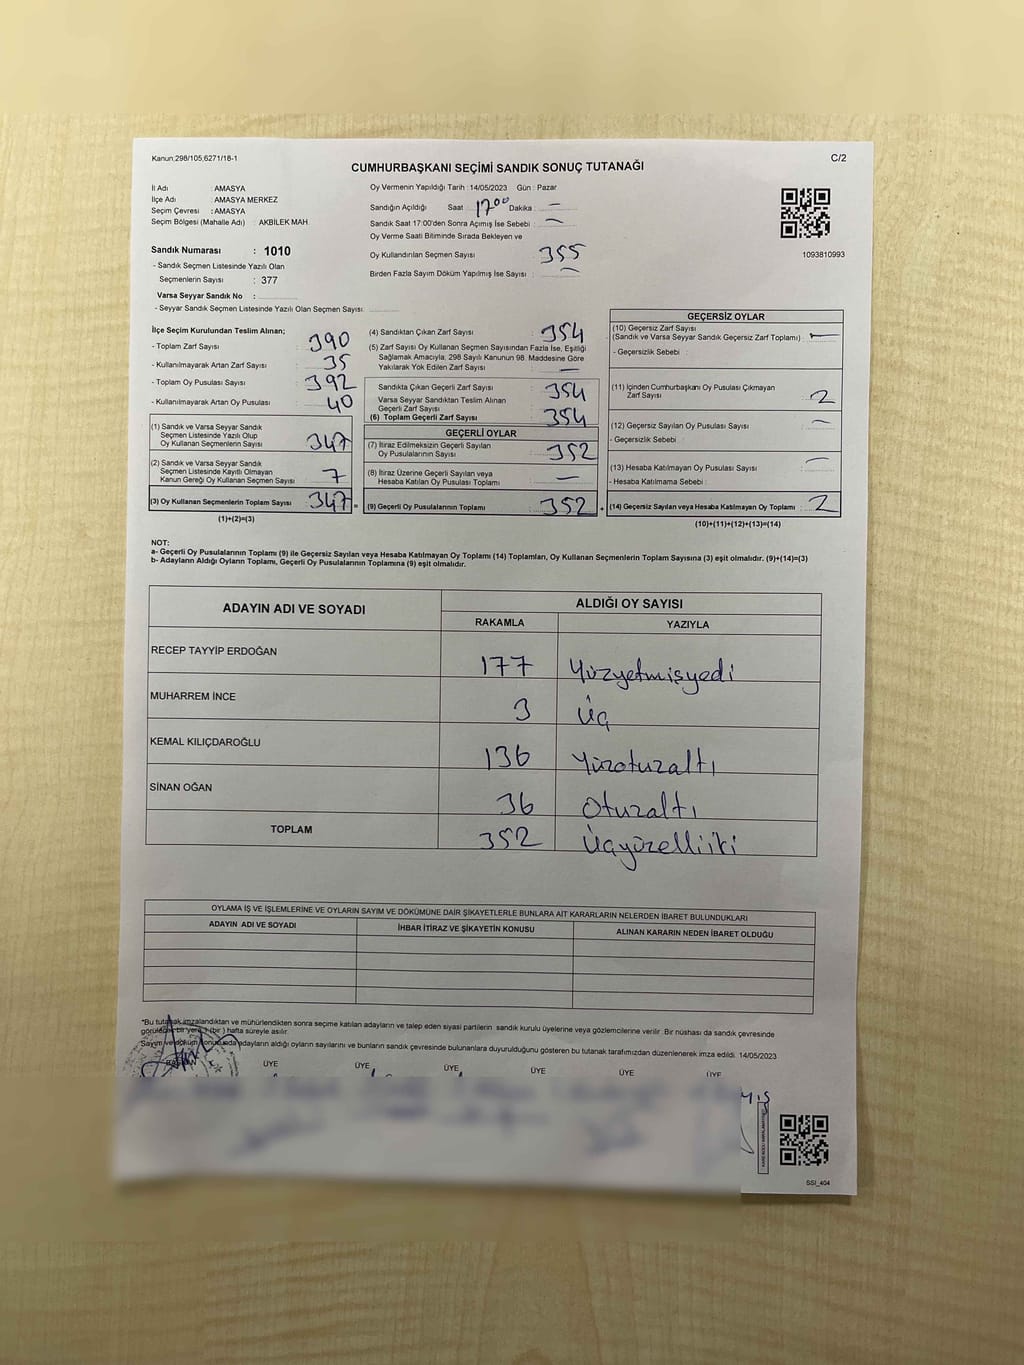 Kanun,298/105,6271/18-1
C/2
CUMHURBAŞKANI SEÇİMİ SANDIK SONUÇ TUTANAĞI
İl Adı : AMASYA
İlçe Adı : AMASYA MERKEZ
Seçim Çevresi : AMASYA
Seçim Bölgesi (Mahalle Adı) : AKBİLEK MAH.
Oy Vermenin Yapıldığı Tarih : 14/05/2023 Gün : Pazar
Sandığın Açıldığı Saat : 17 00 Dakika : —
Sandık Saat 17:00'den Sonra Açımış İse Sebebi : —
Oy Verme Saati Bitiminde Sırada Bekleyen ve
Oy Kullandırılan Seçmen Sayısı : 355
Birden Fazla Sayım Döküm Yapılmış İse Sayısı : —
1093810993
Sandık Numarası : 1010
- Sandık Seçmen Listesinde Yazılı Olan
Seçmenlerin Sayısı : 377
Varsa Seyyar Sandık No :
- Seyyar Sandık Seçmen Listesinde Yazılı Olan Seçmen Sayısı:
İlçe Seçim Kurulundan Teslim Alınan;
- Toplam Zarf Sayısı : 390
- Kullanılmayarak Artan Zarf Sayısı : 35
- Toplam Oy Pusulası Sayısı : 392
- Kullanılmayarak Artan Oy Pusulası : 40
(1) Sandık ve Varsa Seyyar Sandık
Seçmen Listesinde Yazılı Olup
Oy Kullanan Seçmenlerin Sayısı : 347
(2) Sandık ve Varsa Seyyar Sandık
Seçmen Listesinde Kayıtlı Olmayan
Kanun Gereği Oy Kullanan Seçmen Sayısı : 7
(3) Oy Kullanan Seçmenlerin Toplam Sayısı : 347 =
(1)+(2)=(3)
(4) Sandıktan Çıkan Zarf Sayısı : 354
(5) Zarf Sayısı Oy Kullanan Seçmen Sayısından Fazla İse, Eşitliği
Sağlamak Amacıyla; 298 Sayılı Kanunun 98. Maddesine Göre
Yakılarak Yok Edilen Zarf Sayısı : —
Sandıkta Çıkan Geçerli Zarf Sayısı : 354
Varsa Seyyar Sandıktan Teslim Alınan
Geçerli Zarf Sayısı
(6) Toplam Geçerli Zarf Sayısı : 354
GEÇERLİ OYLAR
(7) İtiraz Edilmeksizin Geçerli Sayılan
Oy Pusulalarının Sayısı : 352
(8) İtiraz Üzerine Geçerli Sayılan veya
Hesaba Katılan Oy Pusulası Toplamı : —
(9) Geçerli Oy Pusulalarının Toplamı : 352 +
GEÇERSİZ OYLAR
(10) Geçersiz Zarf Sayısı
(Sandık ve Varsa Seyyar Sandık Geçersiz Zarf Toplamı) : —
- Geçersizlik Sebebi :
(11) İçinden Cumhurbaşkanı Oy Pusulası Çıkmayan
Zarf Sayısı : 2
(12) Geçersiz Sayılan Oy Pusulası Sayısı : —
- Geçersizlik Sebebi :
(13) Hesaba Katılmayan Oy Pusulası Sayısı : —
- Hesaba Katılmama Sebebi :
(14) Geçersiz Sayılan veya Hesaba Katılmayan Oy Toplamı : 2
(10)+(11)+(12)+(13)=(14)
NOT:
a- Geçerli Oy Pusulalarının Toplamı (9) ile Geçersiz Sayılan veya Hesaba Katılmayan Oy Toplamı (14) Toplamları, Oy Kullanan Seçmenlerin Toplam Sayısına (3) eşit olmalıdır. (9)+(14)=(3)
b- Adayların Aldığı Oyların Toplamı, Geçerli Oy Pusulalarının Toplamına (9) eşit olmalıdır.
ADAYIN ADI VE SOYADI
ALDIĞI OY SAYISI
RAKAMLA YAZIYLA
RECEP TAYYİP ERDOĞAN 177 Yüzyetmişyedi
MUHARREM İNCE 3 Üç
KEMAL KILIÇDAROĞLU 136 Yüzotuzaltı
SİNAN OĞAN 36 Otuzaltı
TOPLAM 352 Üçyüzelliiki
OYLAMA İŞ VE İŞLEMLERİNE VE OYLARIN SAYIM VE DÖKÜMÜNE DAİR ŞİKAYETLERLE BUNLARA AİT KARARLARIN NELERDEN İBARET BULUNDUKLARI
ADAYIN ADI VE SOYADI İHBAR İTİRAZ VE ŞİKAYETİN KONUSU ALINAN KARARIN NEDEN İBARET OLDUĞU
"Bu tutanak imzalandıktan ve mühürlendikten sonra seçime katılan adayların ve talep eden siyasi partilerin sandık kurulu üyelerine veya gözlemcilerine verilir. Bir nüshası da sandık çevresinde
görülecek bir yere 1 (bir ) hafta süreyle asılır.
Sayım ve döküm sonucunda adayların aldığı oyların sayılarını ve bunların sandık çevresinde bulunanlara duyurulduğunu gösteren bu tutanak tarafımızdan düzenlenerek imza edildi. 14/05/2023
BAŞKAN ÜYE ÜYE ÜYE ÜYE ÜYE ÜYE
SSI_404